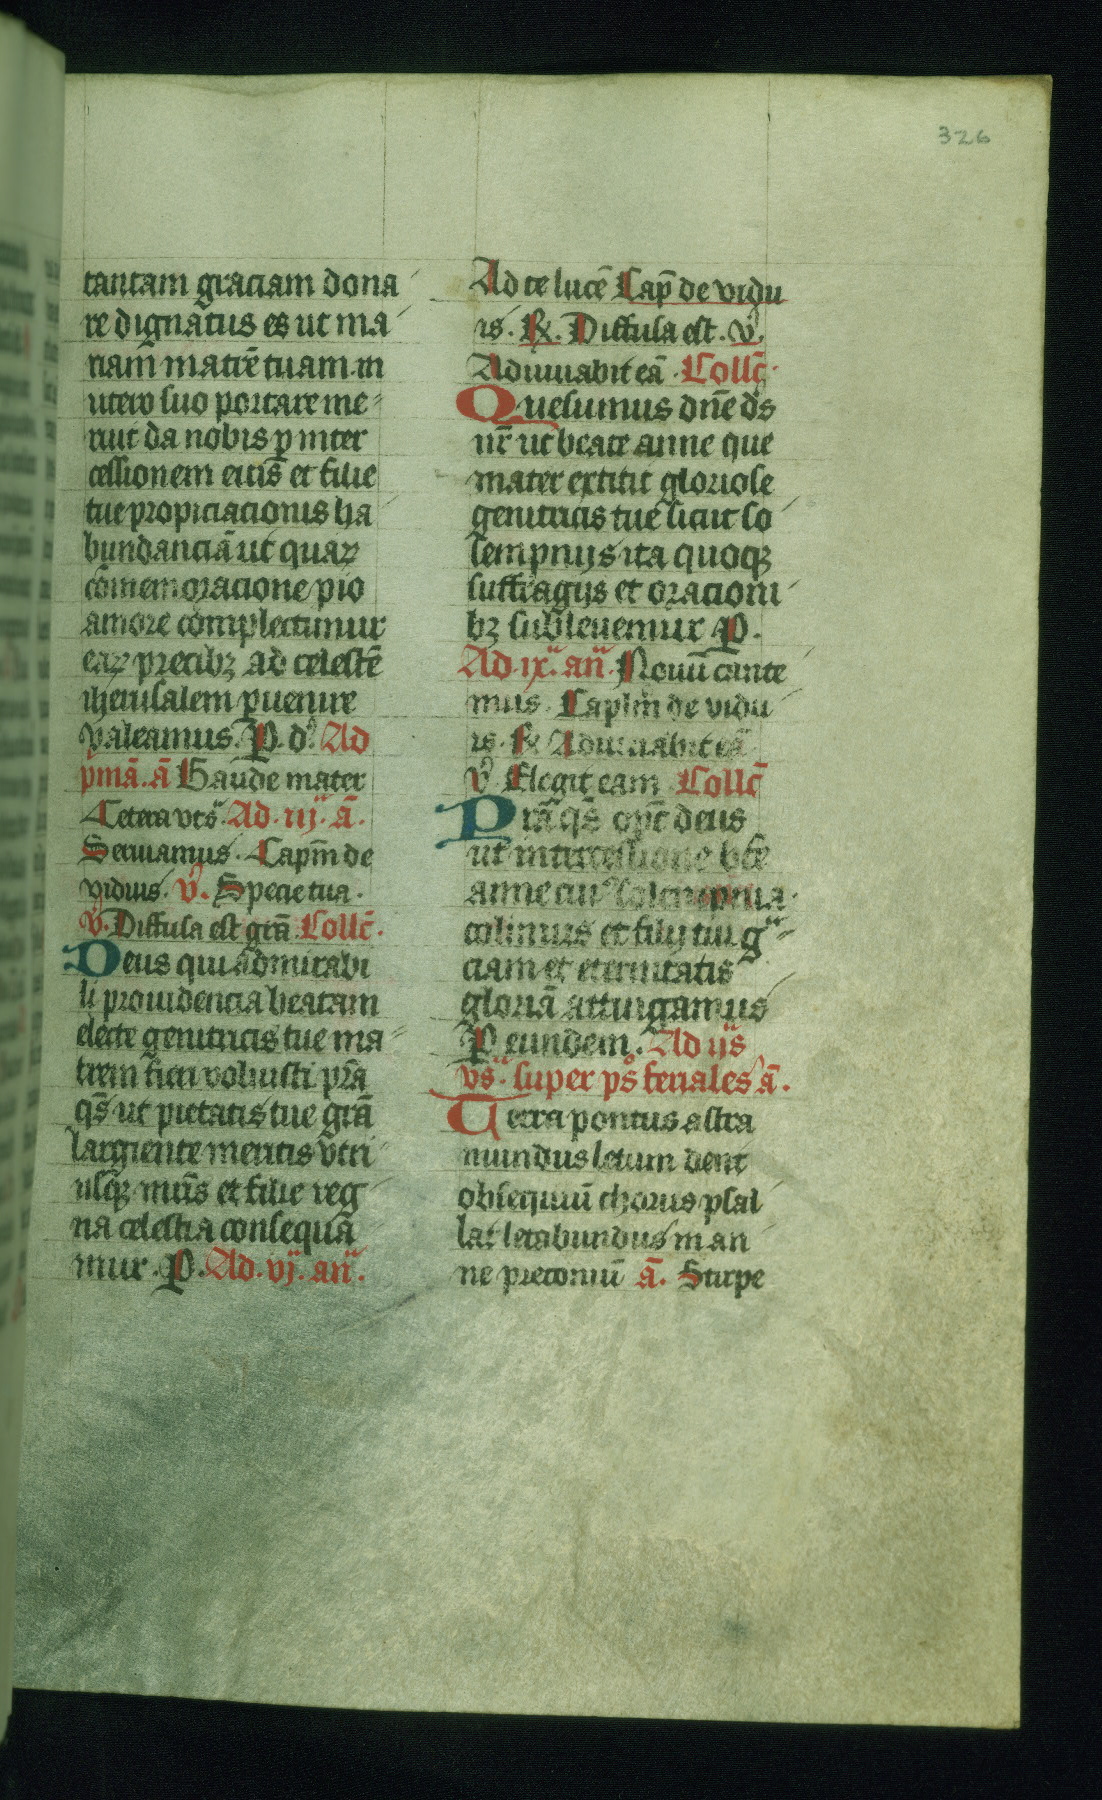 326
tantam graciam dona
re dignatus es ut ma
riam matrē tuam in
utero suo portare me
ruit da nobis p inter
cessionem eiuš et filie
tue propiciacionis ha
bundanciā ut quaꝝ
cōmemoracione pio
amore complectimur
eaꝝ precibꝫ ad celestē
iherusalem puenire
valeamus. P. d. Ad
pmā. ā Gaude mater
Cetera vts. Ad. iij. ā.
Seruiamus. Capm̄ de
viduis. v̊. Specie tua.
v̊. Diffusa est grā Collc̄.
Deus qui admirabi
li prouidencia beatam
electe genitricis tue ma
trem fieri voluisti prā
qs̄ ut pietatis tue grā
largiente meritis vtri
usqꝫ mr̄is et filie reg
na celestia consequā
mur. P. Ad. vj. añ.
Ad te lucē Cap̄ de vidu
is. ꝶ. Diffusa est. v̊.
Adiuuabit eā. Collc̄.
Quesumus dn̄e ds
nr̄ ut beate anne que
mater extitit gloriose
genitricis tue sicut so
lempnijs ita quoqꝫ
suffragijs et oracioni
bꝫ subleuemur P.
Ad. ix. añ. Nouū cante
mus. Caplm̄ de vidu
is. ꝶ Adiuuabit eā
v̊ Elegit eam Collc̄
Prā qs̄ opc̄ deus
ut intercessione bt̄e
anne cui solempnia
colimus et filij tui g
ciam et eternitatis
gloriā attingamus
P eundem. Ad ijs
vs. super ps̊ feriales ā.
Terra pontus astra
mundus letum dent
obsequiū chorus psal
lat letabundus in an
ne preconiū ā. Stirpe